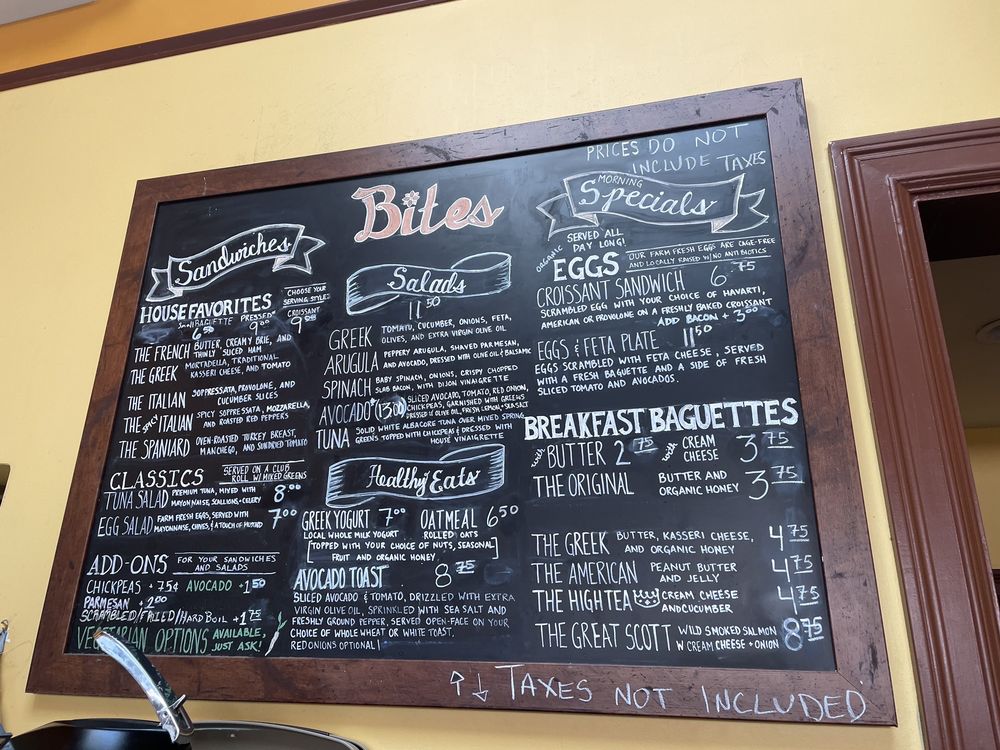 PRICES DO NOT
INCLUDE TAXES
Bites
Sandwiches
HOUSE FAVORITES CHOOSE YOUR
SERVING STYLE
Small BAGUETTE PRESSED CROISSANT
6.50 9.00
THE FRENCH BUTTER, CREAMY BRIE, AND
THINLY SLICED HAM
THE GREEK MORTADELLA, TRADITIONAL
KASSERI CHEESE, AND TOMATO
THE ITALIAN SOPPRESSATA, PROVOLONE, AND
CUCUMBER SLICES
THE SPICY ITALIAN SPICY SOPRESSATA, MOZZARELLA,
AND ROASTED RED PEPPERS
THE SPANIARD OVEN-ROASTED TURKEY BREAST,
MANCHEGO, AND SUNDRIED TOMATO
CLASSICS SERVED ON A CLUB
ROLL W/ MIXED GREENS
TUNA SALAD PREMIUM TUNA, MIXED WITH
MAYONNAISE, SCALLIONS + CELERY 8.00
EGG SALAD FARM FRESH EGGS, SERVED WITH
MAYONNAISE, CHIVES, & A TOUCH OF MUSTARD 7.00
ADD-ONS FOR YOUR SANDWICHES
AND SALADS
CHICKPEAS + 75¢ AVOCADO +1.50
PARMESAN + 2.00
SCRAMBLED/FRIED/HARD BOIL +1.75
VEGETARIAN OPTIONS AVAILABLE,
JUST ASK!
Salads
11.50
GREEK TOMATO, CUCUMBER, ONIONS, FETA,
OLIVES, AND EXTRA VIRGIN OLIVE OIL
ARUGULA PEPPERY ARUGULA, SHAVED PARMESAN,
AND AVOCADO, DRESSED WITH OLIVE OIL & BALSAMIC
SPINACH BABY SPINACH, ONIONS, CRISPY CHOPPED
SLAB BACON, WITH DIJON VINAIGRETTE
AVOCADO (13.00) SLICED AVOCADO, TOMATO, RED ONION,
CHICKPEAS, GARNISHED WITH GREENS
DRESSED W OLIVE OIL, FRESH LEMON + SEA SALT
TUNA SOLID WHITE ALBACORE TUNA OVER MIXED SPRING
GREENS TOPPED WITH CHICKPEAS & DRESSED WITH
HOUSE VINAIGRETTE
Healthy Eats
GREEK YOGURT 7.00 OATMEAL 6.50
LOCAL WHOLE MILK YOGURT ROLLED OATS
[TOPPED WITH YOUR CHOICE OF NUTS, SEASONAL]
FRUIT AND ORGANIC HONEY
AVOCADO TOAST 8.75
SLICED AVOCADO & TOMATO, DRIZZLED WITH EXTRA
VIRGIN OLIVE OIL, SPRINKLED WITH SEA SALT AND
FRESHLY GROUND PEPPER, SERVED OPEN-FACE ON YOUR
CHOICE OF WHOLE WHEAT OR WHITE TOAST.
RED ONIONS OPTIONAL!
MORNING
Specials
SERVED ALL
DAY LONG!
ORGANIC EGGS OUR FARM FRESH EGGS ARE CAGE-FREE
AND LOCALLY RAISED W/ NO ANTIBIOTICS
CROISSANT SANDWICH 6.75
SCRAMBLED EGG WITH YOUR CHOICE OF HAVARTI,
AMERICAN OR PROVOLONE ON A FRESHLY BAKED CROISSANT
ADD BACON + 3.00
EGGS & FETA PLATE 11.50
EGGS SCRAMBLED WITH FETA CHEESE, SERVED
WITH A FRESH BAGUETTE AND A SIDE OF FRESH
SLICED TOMATO AND AVOCADOS.
BREAKFAST BAGUETTES
with BUTTER 2.75 with CREAM
CHEESE 3.75
THE ORIGINAL BUTTER AND
ORGANIC HONEY 3.75
THE GREEK BUTTER, KASSERI CHEESE,
AND ORGANIC HONEY 4.75
THE AMERICAN PEANUT BUTTER
AND JELLY 4.75
THE HIGH TEA CREAM CHEESE
AND CUCUMBER 4.75
THE GREAT SCOTT WILD SMOKED SALMON
W CREAM CHEESE + ONION 8.75
↑↓ TAXES NOT INCLUDED